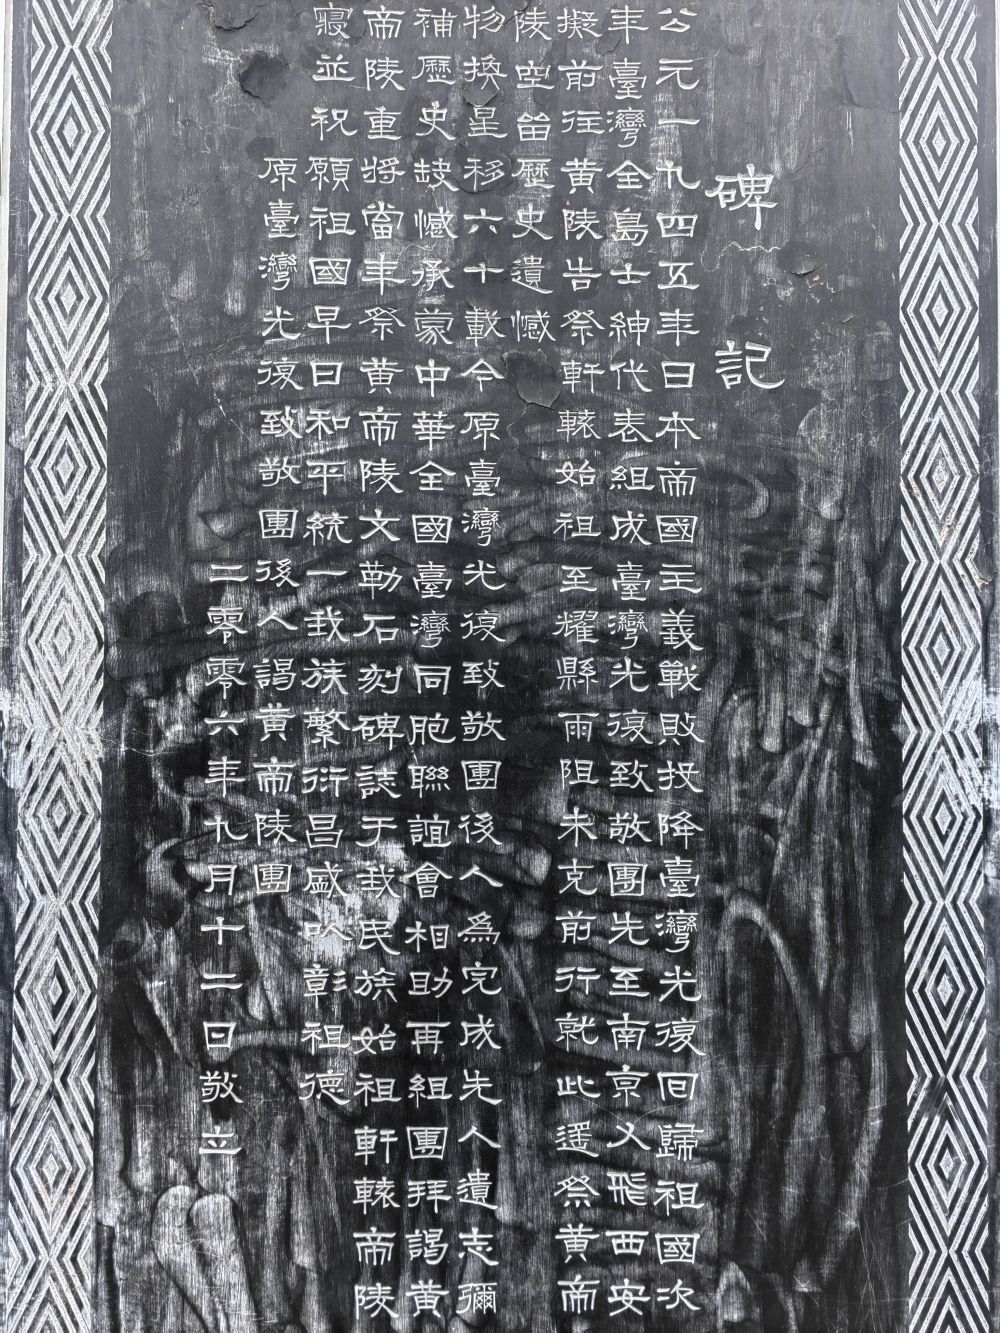 碑記
公元一九四五年日本帝國主義戰敗投降臺灣光復回歸祖國次
年臺灣全島士紳代表組成臺灣光復致敬團先至南京又飛西安
擬前往黃陵告祭軒轅始祖至耀縣雨阻未克前行就此遙祭黃帝
陵空留歷史遺憾
物換星移六十載今原臺灣光復致敬團後人為完成先人遺志彌
補歷史缺憾承蒙中華全國臺灣同胞聯誼會相助再組團拜謁黃
帝陵重將當年祭黃帝陵文勒石刻碑誌于我民族始祖軒轅帝陵
寢並祝願祖國早日和平統一我族繁衍昌盛以彰祖德
原臺灣光復致敬團後人謁黃帝陵團
二零零六年九月十二日敬立